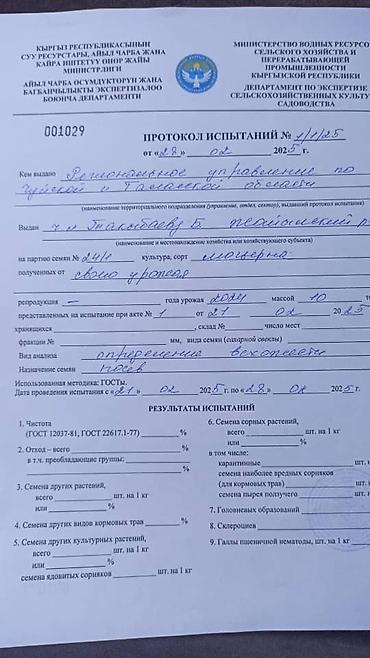 КЫРГЫЗ РЕСПУБЛИКАСЫНЫН
СУУ РЕСУРСТАРЫ, АЙЫЛ ЧАРБА ЖАНА
КАЙРА ИШТЕТҮҮ ӨНӨР ЖАЙЫ
МИНИСТРЛИГИ
АЙЫЛ ЧАРБА ӨСҮМДҮКТӨРҮН ЖАНА
БАГБАНЧЫЛЫКТЫ ЭКСПЕРТИЗАЛОО
БОЮНЧА ДЕПАРТАМЕНТИ
МИНИСТЕРСТВО ВОДНЫХ РЕСУРСО
СЕЛЬСКОГО ХОЗЯЙСТВА И
ПЕРЕРАБАТЫВАЮЩЕЙ
ПРОМЫШЛЕННОСТИ
КЫРГЫЗСКОЙ РЕСПУБЛИКИ
ДЕПАРТАМЕНТ ПО ЭКСПЕРТИЗЕ
СЕЛЬСКОХОЗЯЙСТВЕННЫХ КУЛЬТУ
САДОВОДСТВА
001029
ПРОТОКОЛ ИСПЫТАНИЙ № 1/1/25
от «28» 02 2025 г.
Кем выдано Региональное управление по
Чуйской и Таласской области
(наименование территориального подразделения (управление, отдел, сектор), выдавший протокол испытаний)
Выдан ч/л Токобаеву Б.
(наименование и местонахождение хозяйства или хозяйствующего субъекта)
на партию семян № 24/1 культура, сорт люцерна
полученных от своего урожая
репродукция — года урожая 2024 массой 10
представленных на испытание при акте № 1 от 21 02 2025
хранящихся , склад № число мест
фракции № мм, вида семян (сахарной свеклы)
Вид анализа определение всхожести
Назначение семян посев
Использованная методика: ГОСТы.
Дата проведения испытания с «21» 02 2025 г. по «28» 02 2025 г.
РЕЗУЛЬТАТЫ ИСПЫТАНИЙ
1. Чистота
(ГОСТ 12037-81, ГОСТ 22617.1-77) %
2. Отход – всего %
в т.ч. преобладающие группы:
%
3. Семена других растений,
всего шт. на 1 кг
или %
4. Семена других видов кормовых трав %
5. Семена других культурных растений,
всего шт. на 1 кг
или %
семена ядовитых сорняков шт. на 1 кг
6. Семена сорных растений,
всего шт. на 1 кг
или %
в том числе:
карантинные шт. на
семена наиболее вредных сорняков
(для кормовых трав) шт. на
семена пырея ползучего шт. на
7. Головневых образований
8. Склероциев
9. Галлы пшеничной нематоды, шт. на 1 кг